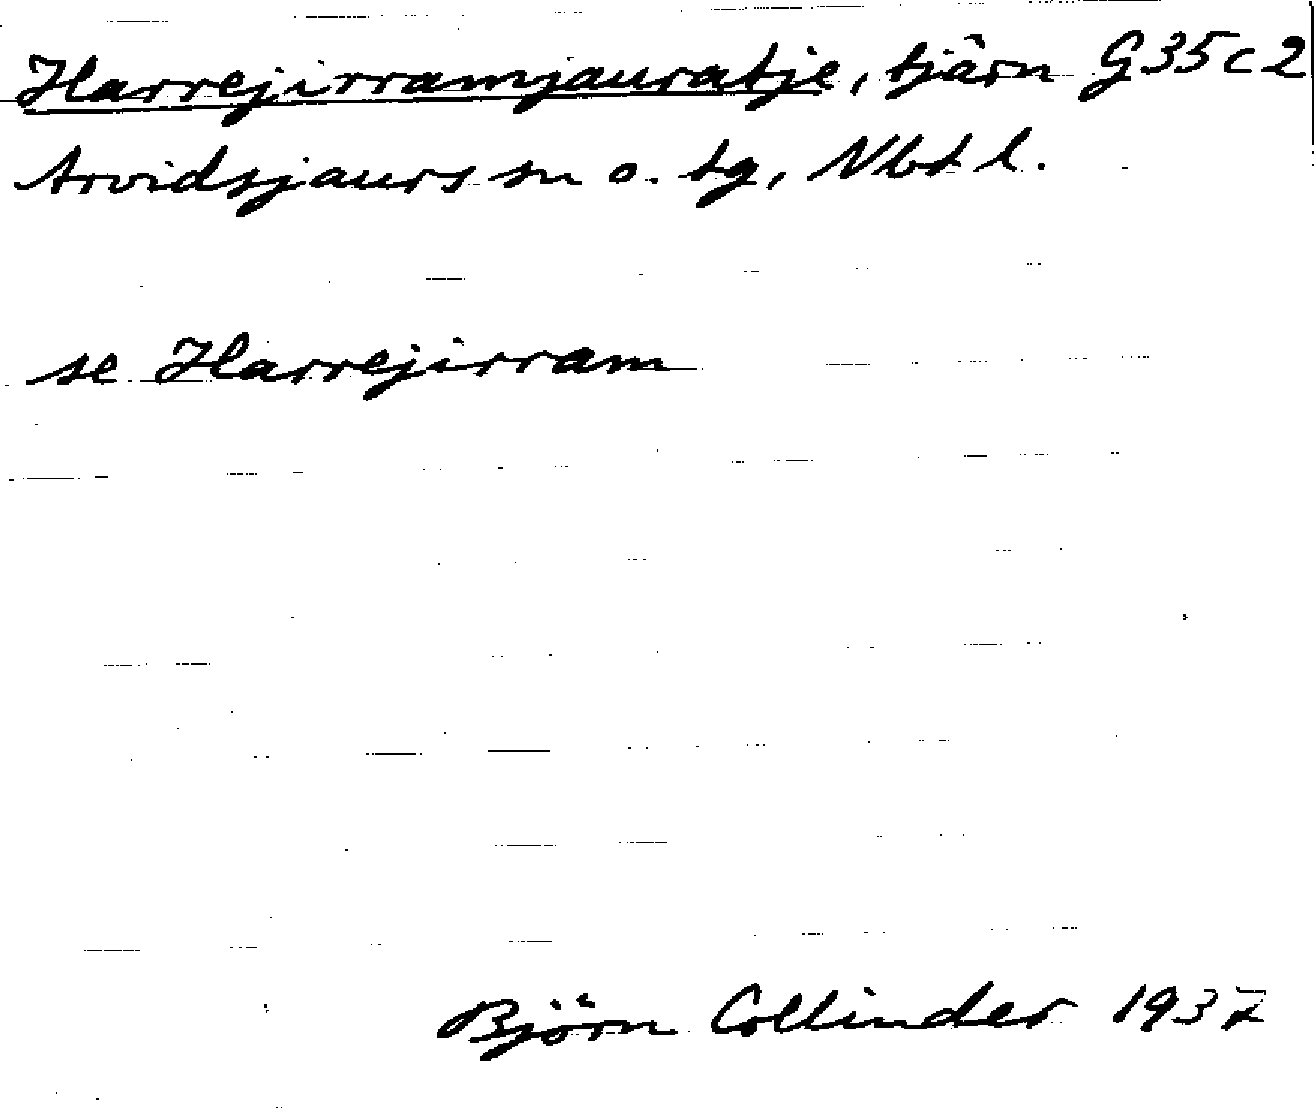 Harrejirramjauratje, tjärn G35c2
Arvidsjaurs sn o. tg, Nbt l.
se Harrejirram
Björn Collinder 1937